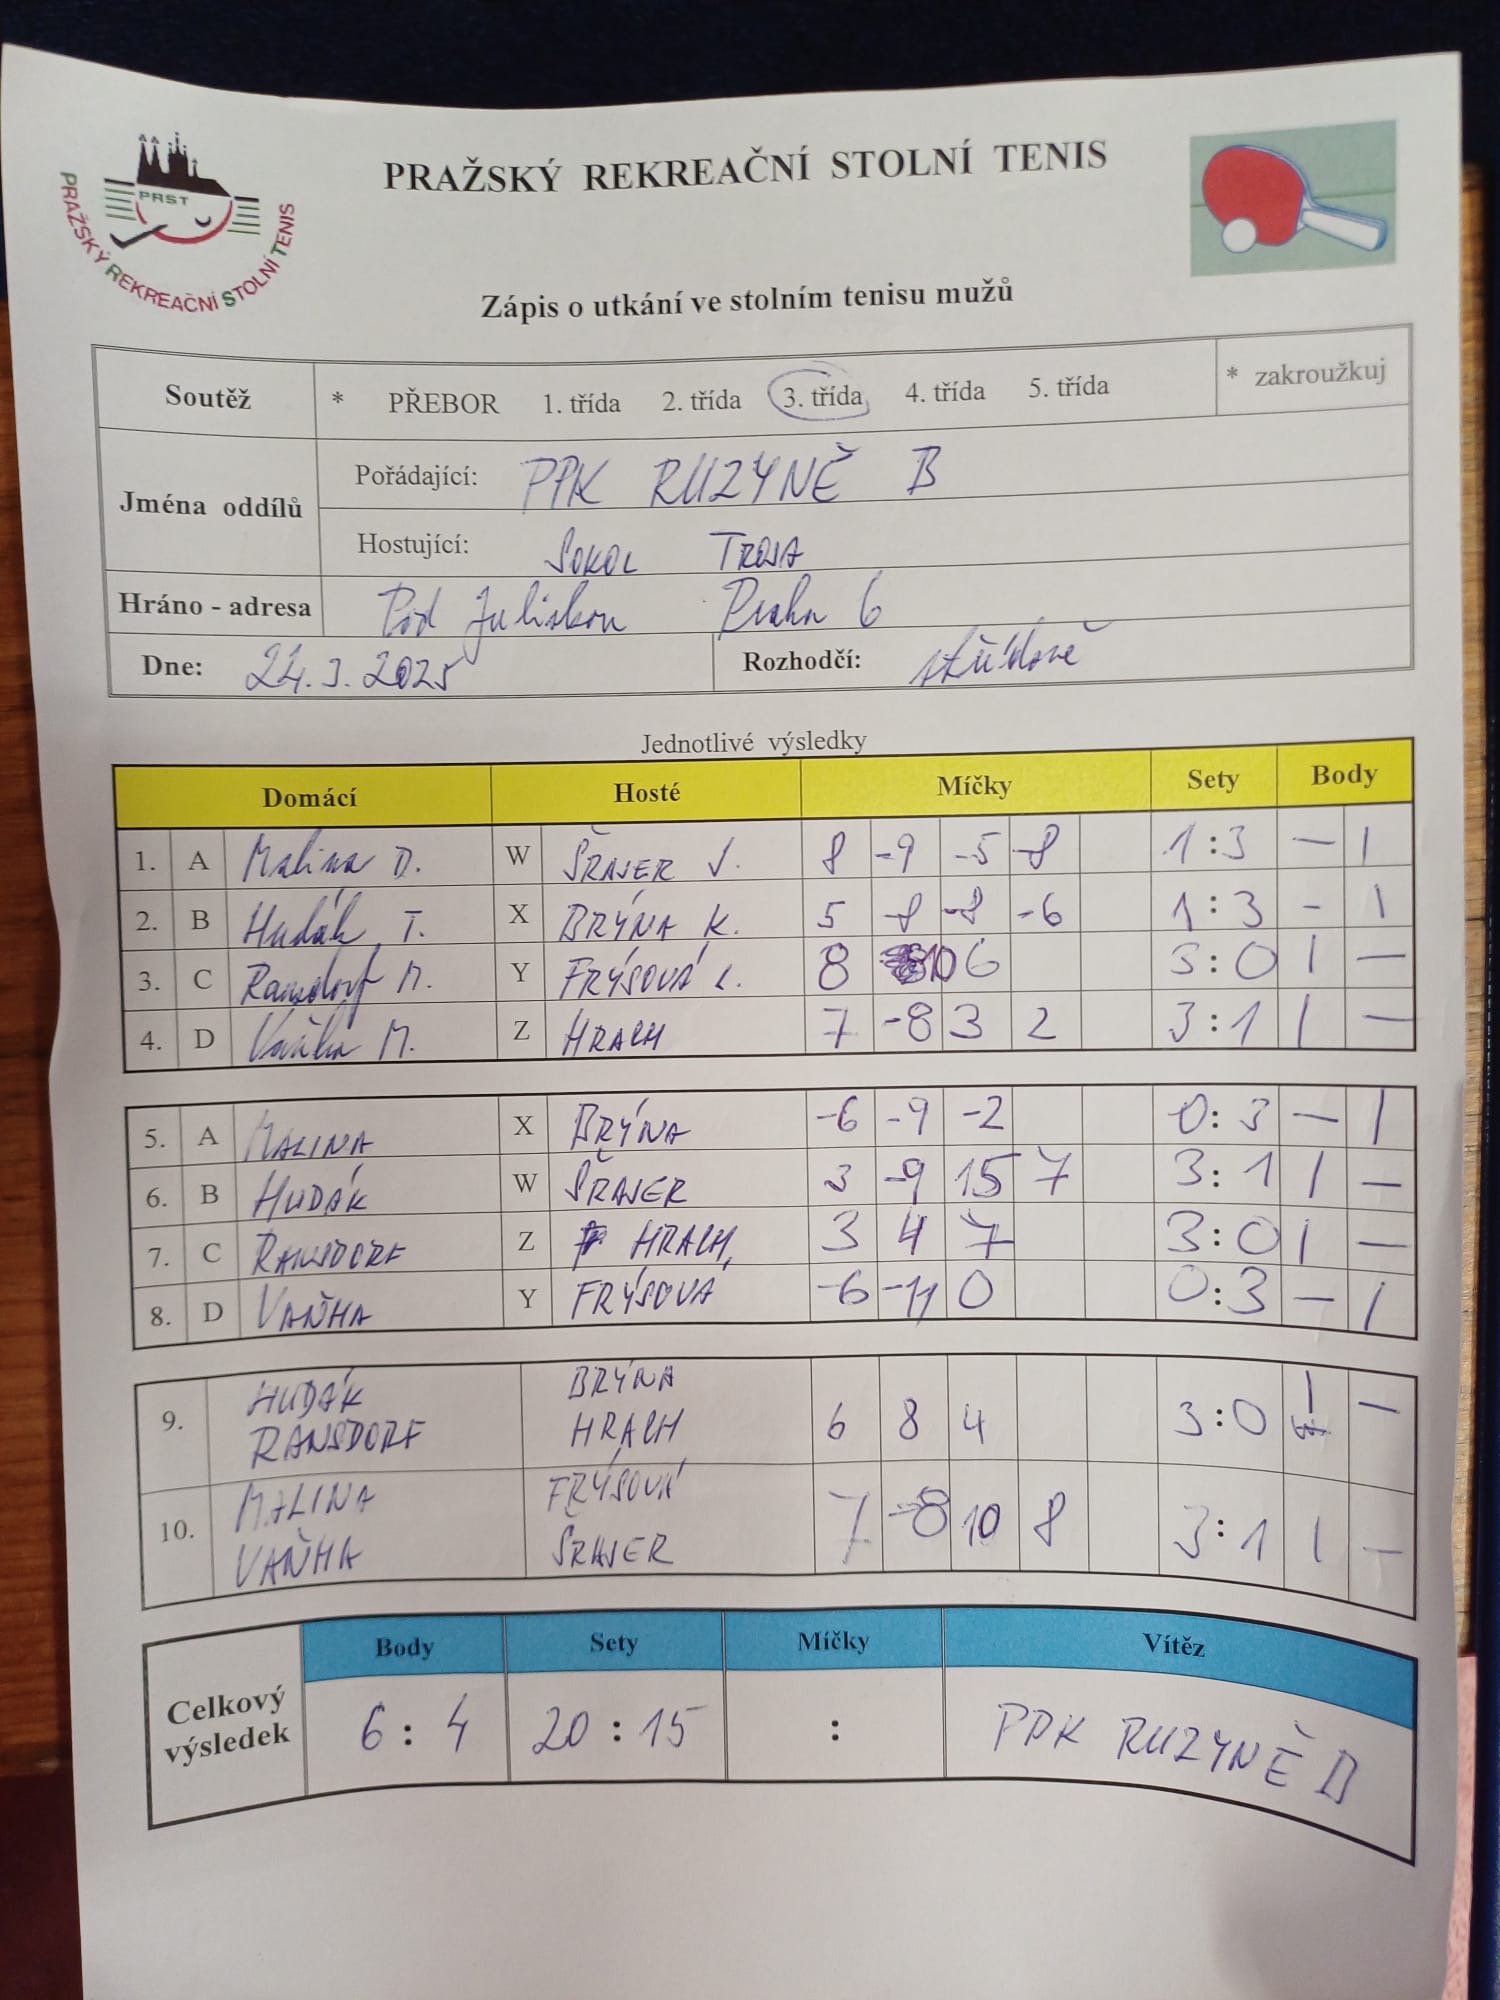 PRST
PRAŽSKÝ REKREAČNÍ STOLNÍ TENIS
PRAŽSKÝ REKREAČNÍ STOLNÍ TENIS
Zápis o utkání ve stolním tenisu mužů
Soutěž * PŘEBOR 1. třída 2. třída 3. třída 4. třída 5. třída * zakroužkuj
Jména oddílů
Pořádající: PPK RUZYNĚ B
Hostující: SOKOL TROJA
Hráno - adresa Pod Juliskou Praha 6
Dne: 24.3.2025 Rozhodčí: střídavě
Jednotlivé výsledky
Domácí Hosté Míčky Sety Body
1. A Malina D. W ŠRAJER J. 8 -9 -5 -8 1:3 — 1
2. B Hudák T. X BRÝNA K. 5 -8 -8 -6 1:3 - 1
3. C Ransdorf M. Y FRÝSOVÁ L. 8 10 6 3:0 1 —
4. D Vaňha M. Z HRACH 7 -8 3 2 3:1 1 —
5. A MALINA X BRÝNA -6 -9 -2 0:3 — 1
6. B HUDÁK W ŠRAJER 3 -9 15 7 3:1 1 —
7. C RANSDORF Z HRACH 3 4 7 3:0 1 —
8. D VAŇHA Y FRÝSOVÁ -6 -11 0 0:3 — 1
9. HUDÁK BRÝNA
RANSDORF HRACH 6 8 4 3:0 1 —
10. MALINA FRÝSOVÁ
VAŇHA ŠRAJER 7 -8 10 8 3:1 1 —
Body Sety Míčky Vítěz
Celkový výsledek 6:4 20:15 : PPK RUZYNĚ B